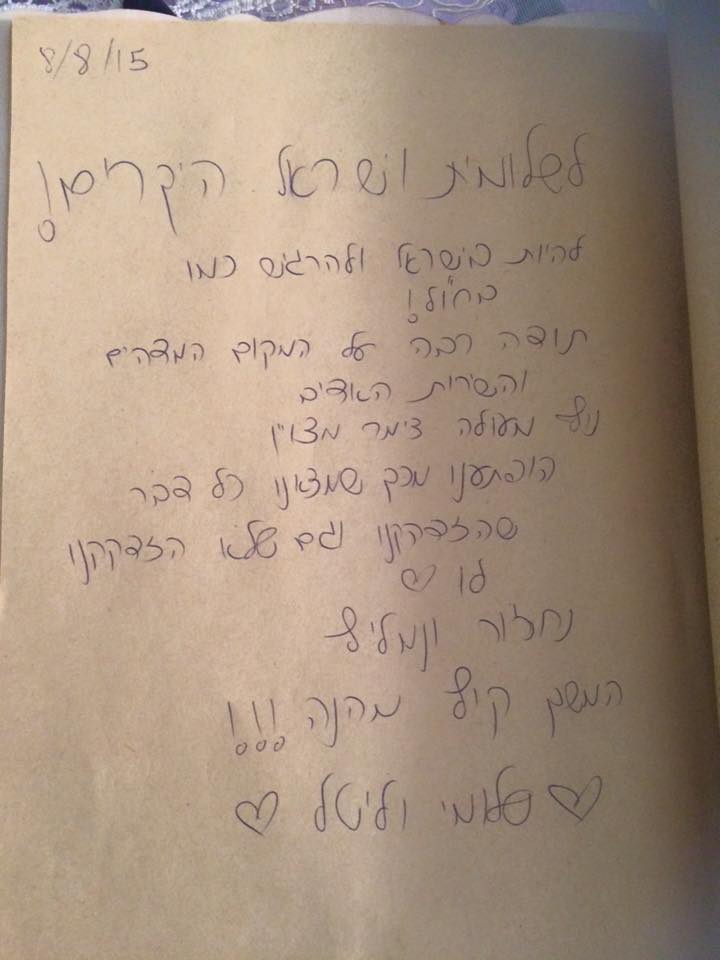 8/8/15
לשלומית וישראל היקרים!
להיות בישראל ולהרגיש כמו
בחו"ל!
תודה רבה על המקום המדהים
והשירות האדיב
נוף מעולה צימר מצוין
הופתענו מכך שמצאנו כל דבר
שהזדקקנו וגם שלא הזדקקנו
לו ♡
נחזור ונמליץ
המשך קיץ מהנה!!!
♡ שלומי וליטל ♡